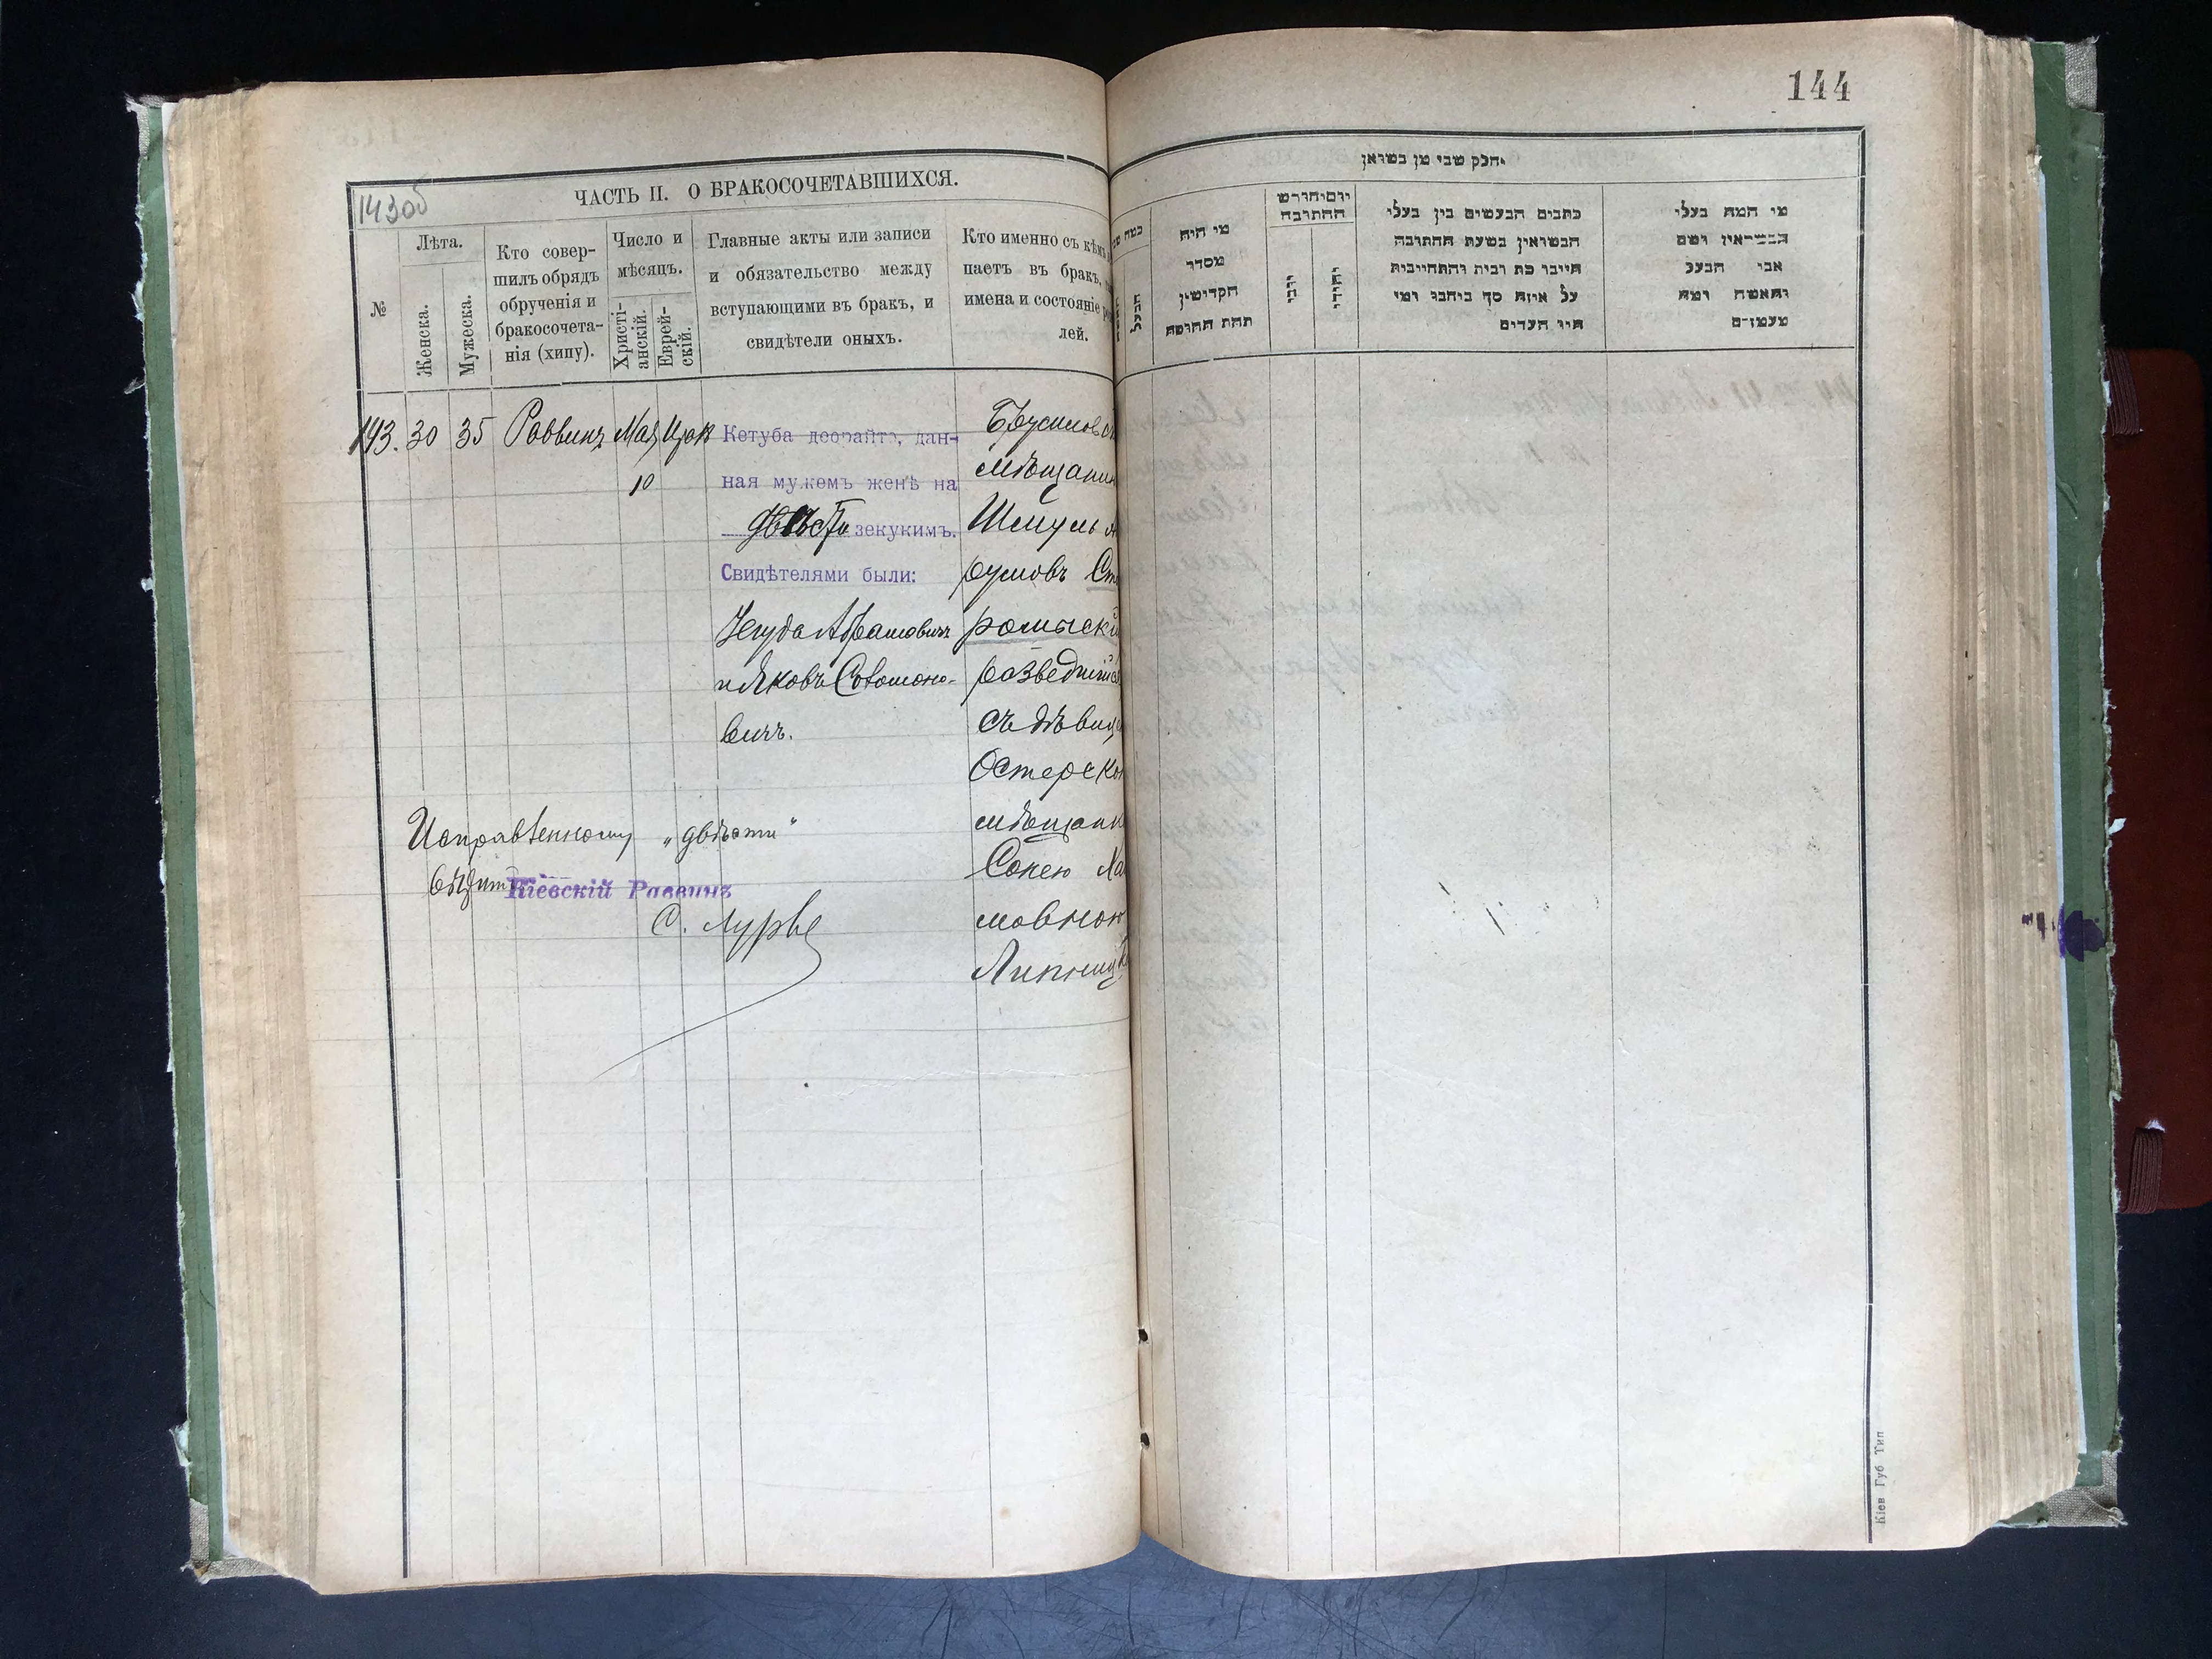 144
143об
ЧАСТЬ II. О БРАКОСОЧЕТАВШИХСЯ.
№
Лѣта.
Женска.
Мужеска.
Кто совер-
шилъ обрядъ
обрученія и
бракосочета-
нія (хипу).
Число и
мѣсяцъ.
Христі-
анскій.
Еврей-
скій.
Главные акты или записи
и обязательство между
вступающими въ бракъ, и
свидѣтели оныхъ.
Кто именно съ кѣмъ
паетъ въ бракъ,
имена и состояніе
лей.
143. 30 35 Раввинъ Мая Ијок
10
Кетуба деорайто, дан-
ная мужемъ женѣ на
двѣсти зекукимъ.
Свидѣтелями были:
Іегуда Абрамовичъ
и Яковъ Соломоно-
вичъ.
Брусиловс
мѣщанин
Шмуль
румовъ Ст
ромыскі
разведшійс
съ дѣвице
Остерско
мѣщанк
Сонею Ха
мовною
Липниц
Исправленному „двѣсти“
вѣрить
Кіевскій Раввинъ
С. Лурье
חלק שני מן נשואן
כמה
הבעל
מי היה
מסדר
הקדושין
תחת החופה
יום וחודש
החתונה
כתבים הנעשים בין בעלי
הנשואין בשעת החתונה
חייבו כת ובית והתחייבות
על איזה סך ביחבו ומי
היו העדים
מי המה בעלי
הנשואין ושם
אבי הבעל
והאשה ומה
מעמדם
Кіев Губ Тип